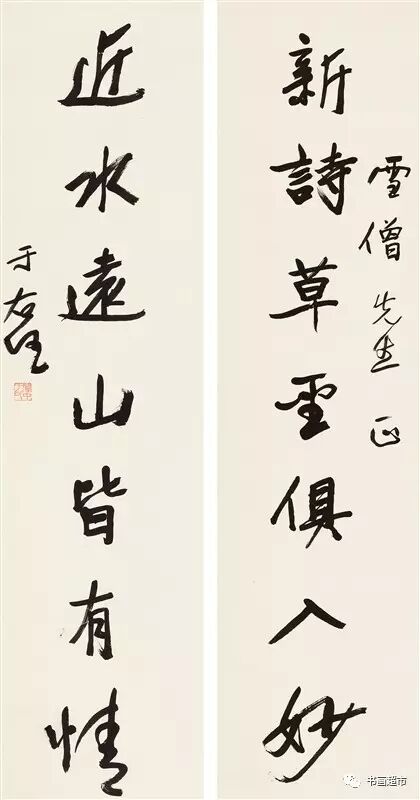 雪僧先生正
新詩草聖俱入妙
近水遠山皆有情
于右任
书画超市